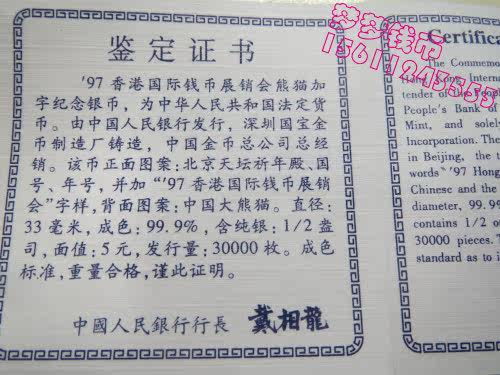 鉴定证书
'97香港国际钱币展销会熊猫加
字纪念银币，为中华人民共和国法定货
币。由中国人民银行发行，深圳国宝金
币制造厂铸造，中国金币总公司总经
销。该币正面图案：北京天坛祈年殿、国
号、年号，并加“'97香港国际钱币展销
会”字样，背面图案：中国大熊猫。直径：
33毫米，成色：99.9%，含纯银：1/2盎
司，面值：5元，发行量：30000枚。成色
标准，重量合格，谨此证明。
中國人民銀行行長 戴相龍
多多钱币
15611245355
Certifica
The Commemo
Hong Kong Interna
tender of the People
People's Bank of
Mint, and solely
Incorporation. The
in Beijing, the t
words "'97 Hong
Chinese and the
diameter, 99.9%
contains 1/2 ou
30000 pieces. T
standard as to i